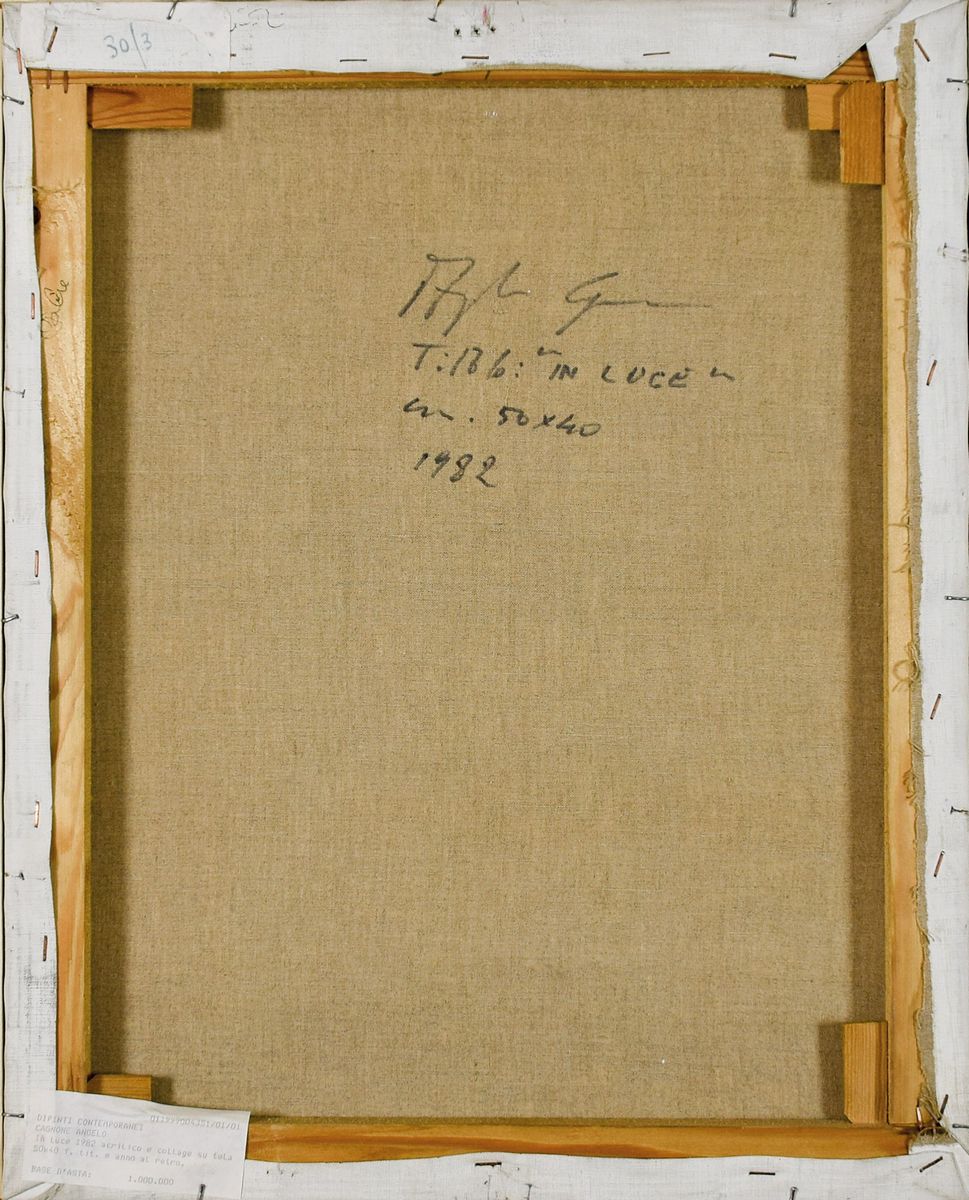 30/3
Angelo Cagnone
Titolo: "IN LUCE"
cm. 50x40
1982
DIPINTI CONTEMPORANEI
CAGNONE ANGELO
In Luce 1982 acrilico e collage su tela
50x40 f. tit. e anno al retro.
BASE D'ASTA: 1.000.000